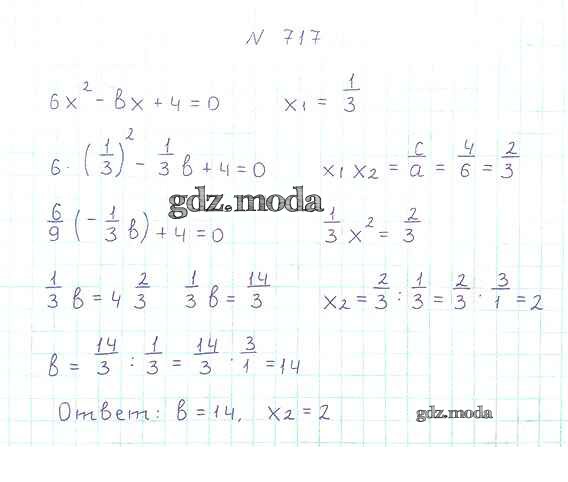 N 717
6x² - вx + 4 = 0   x₁ = 1/3
6 · (1/3)² - 1/3 в + 4 = 0   x₁ x₂ = c/a = 4/6 = 2/3
gdz.moda
6/9 (- 1/3 в) + 4 = 0   1/3 x² = 2/3
1/3 в = 4 2/3   1/3 в = 14/3   x₂ = 2/3 : 1/3 = 2/3 · 3/1 = 2
в = 14/3 : 1/3 = 14/3 · 3/1 = 14
Ответ: в = 14, x₂ = 2   gdz.moda